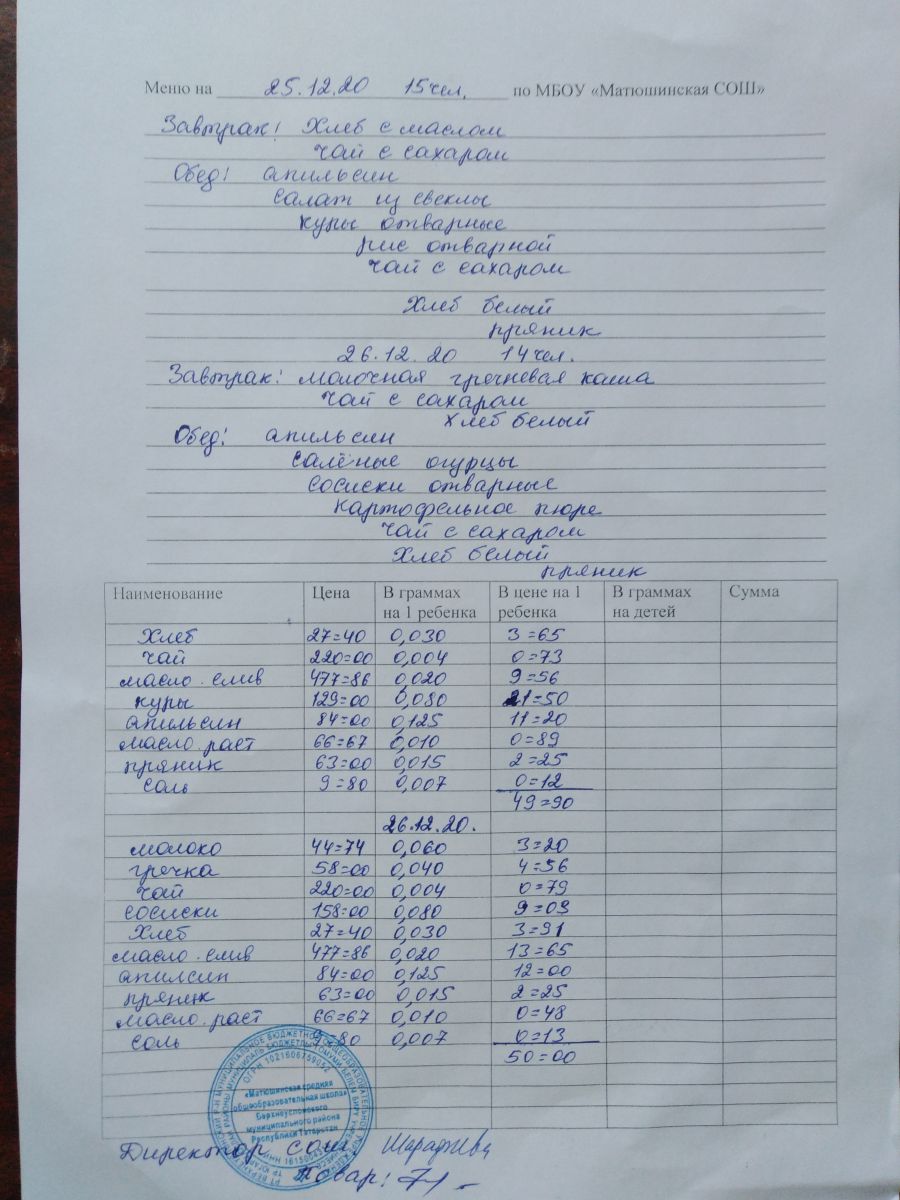 Меню на 25.12.20 15 чел. по МБОУ «Матюшинская СОШ»
Завтрак: Хлеб с маслом
чай с сахаром
Обед: апильсин
салат из свеклы
куры отварные
рис отварной
чай с сахаром
Хлеб белый
пряник
26.12.20 14 чел.
Завтрак: молочная гречневая каша
чай с сахаром
хлеб белый
Обед: апильсин
салёные огурцы
сосиски отварные
картофельное пюре
чай с сахаром
Хлеб белый
пряник
Наименование Цена В граммах на 1 ребенка В цене на 1 ребенка В граммах на детей Сумма
Хлеб 27=40 0,030 3=65
чай 220=00 0,004 0=73
масло слив 477=86 0,020 9=56
куры 129=00 0,080 21=50
апильсин 84=00 0,125 11=20
масло раст 66=67 0,010 0=89
пряник 63=00 0,015 2=25
соль 9=80 0,007 0=12
49=90
26.12.20.
молоко 44=74 0,060 3=20
гречка 58=00 0,040 4=56
чай 220=00 0,004 0=79
сосиски 158=00 0,080 9=03
Хлеб 27=40 0,030 3=91
масло слив 477=86 0,020 13=65
апилсин 84=00 0,125 12=00
пряник 63=00 0,015 2=25
масло раст 66=67 0,010 0=48
соль 9=80 0,007 0=13
50=00
ОГРН 1021606759052
«Матюшинская средняя
общеобразовательная школа»
Верхнеуслонского
муниципального района
Республики Татарстан
Директор сош
Повар: